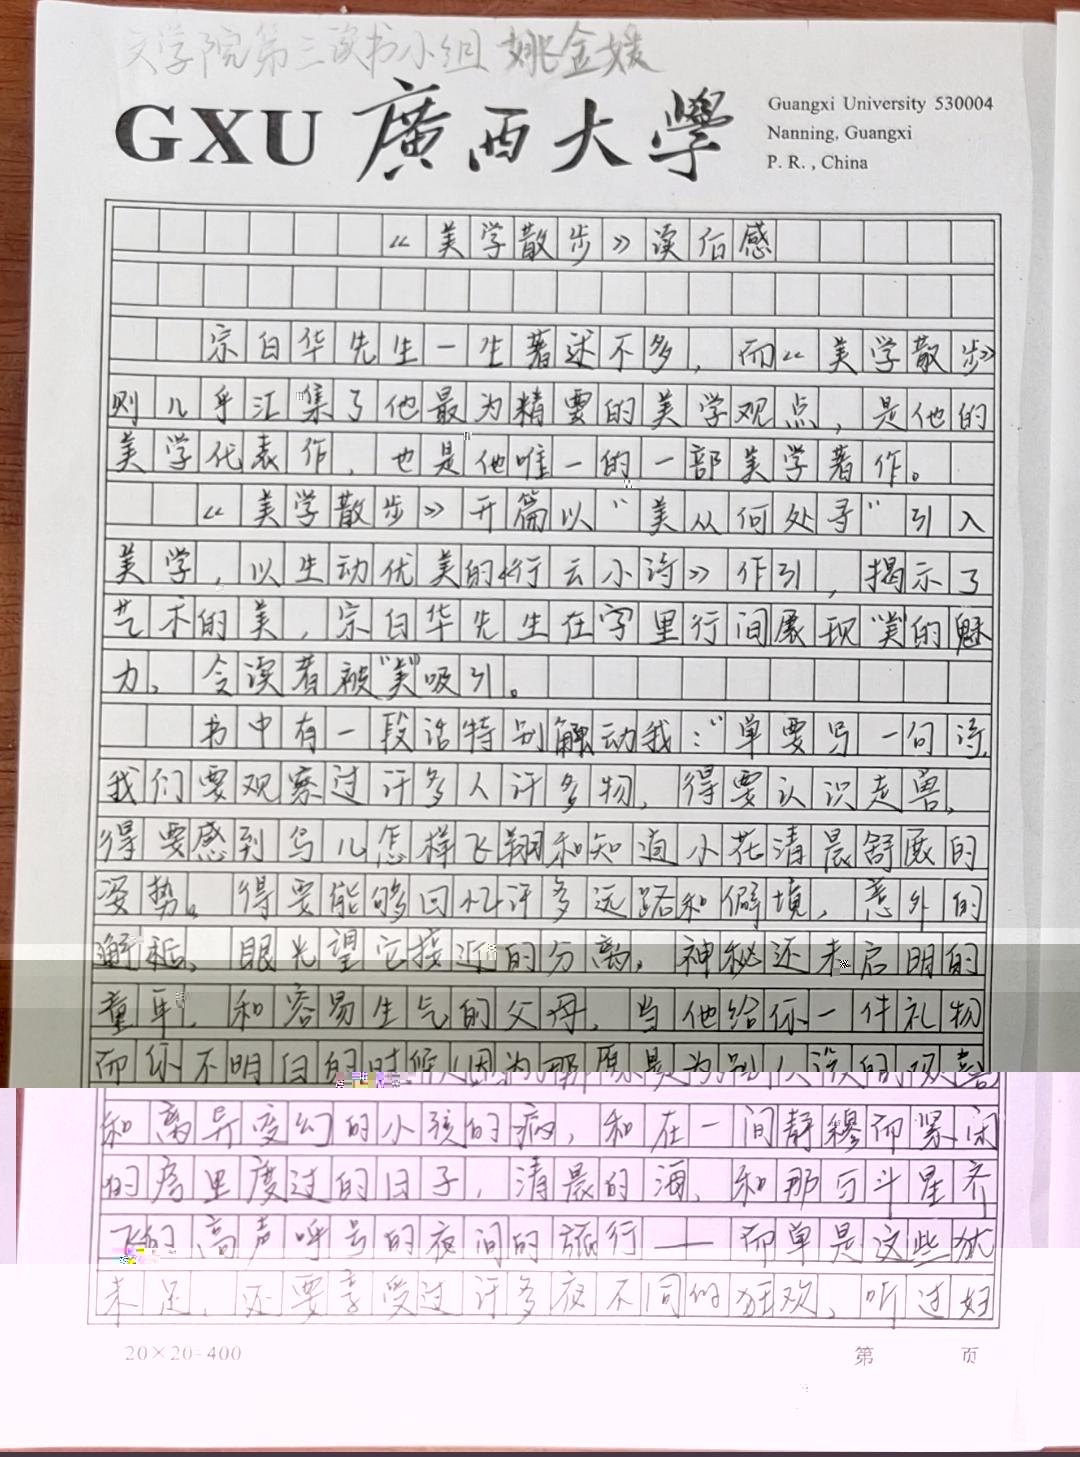 文学院第三读书小组 姚金媛
GXU 廣西大學
Guangxi University 530004
Nanning, Guangxi
P. R. , China
《美学散步》读后感
宗白华先生一生著述不多，而《美学散步》
则几乎汇集了他最为精要的美学观点，是他的
美学代表作，也是他唯一的一部美学著作。
《美学散步》开篇以“美从何处寻”引入
美学，以生动优美的《行云小诗》作引，揭示了
艺术的美，宗白华先生在字里行间展现“美”的魅
力，令读者被“美”吸引。
书中有一段话特别触动我：“单要写一句诗，
我们要观察过许多人许多物，得要认识走兽，
得要感到鸟儿怎样飞翔和知道小花清晨舒展的
姿势。得要能够回忆许多远路和僻境，意外的
邂逅，眼光望它接近的分离，神秘还未启明的
童年，和容易生气的父母，当他给你一件礼物
而你不明白的时候（因为那原是为别人设的欢喜）
和离异变幻的小孩的病，和在一间静穆而紧闭
的房里度过的日子，清晨的海，和那与斗星齐
飞的高声呼号的夜间的旅行——而单是这些犹
未足，还要享受过许多夜不同的狂欢，听过妇
20×20=400
第 页